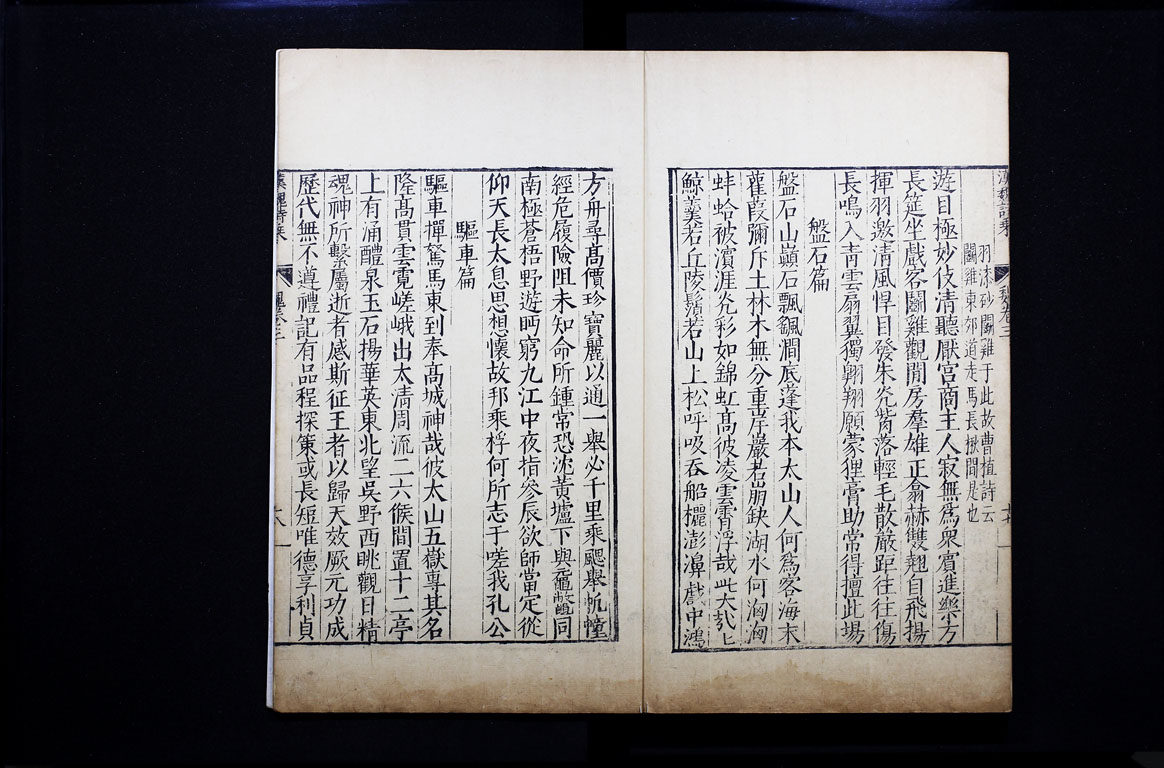 漢魏詩乘
魏卷三
十七
羽漆砂鬭雞于此故曹植詩云
鬭雞東郊道走馬長楸間是也
遊目極妙伎清聽厭宮商主人寂無為衆賓進樂方
長筵坐戲客鬭雞觀閒房羣雄正翕赫雙翹自飛揚
揮羽邀清風悍目發朱光觜落輕毛散嚴距往往傷
長鳴入青雲扇翼獨翱翔願蒙狸膏助常得擅此場
盤石篇
盤石山巔石飄颻澗底蓬我本太山人何為客海末
雚葭彌斥土林木無分重岸巖若崩缺湖水何洶洶
蚌蛤被濱涯光彩如錦虹高彼凌雲霄浮哉
鯨羹若丘陵鬚若山上松呼吸吞船欐澎濞戲中鴻
方舟尋高價珍寶麗以通一舉必千里乘颸舉帆幢
經危履險阻未知命所鍾常恐沈黃壚下與黿鼈同
南極蒼梧野遊眄窮九江中夜指參辰欲師當定從
仰天長太息思想懷故邦乘桴何所志于嗟我孔公
驅車篇
驅車撣駑馬東到奉高城神哉彼太山五嶽專其名
隆高貫雲霓嵯峨出太清周流二六候間置十二亭
上有涌醴泉玉石揚華英東北望吳野西眺觀日精
魂神所繫屬逝者感斯征王者以歸天效厥元功成
歷代無不遵禮記有品程探策或長短唯德享利貞
漢魏詩乘
魏卷三
十八